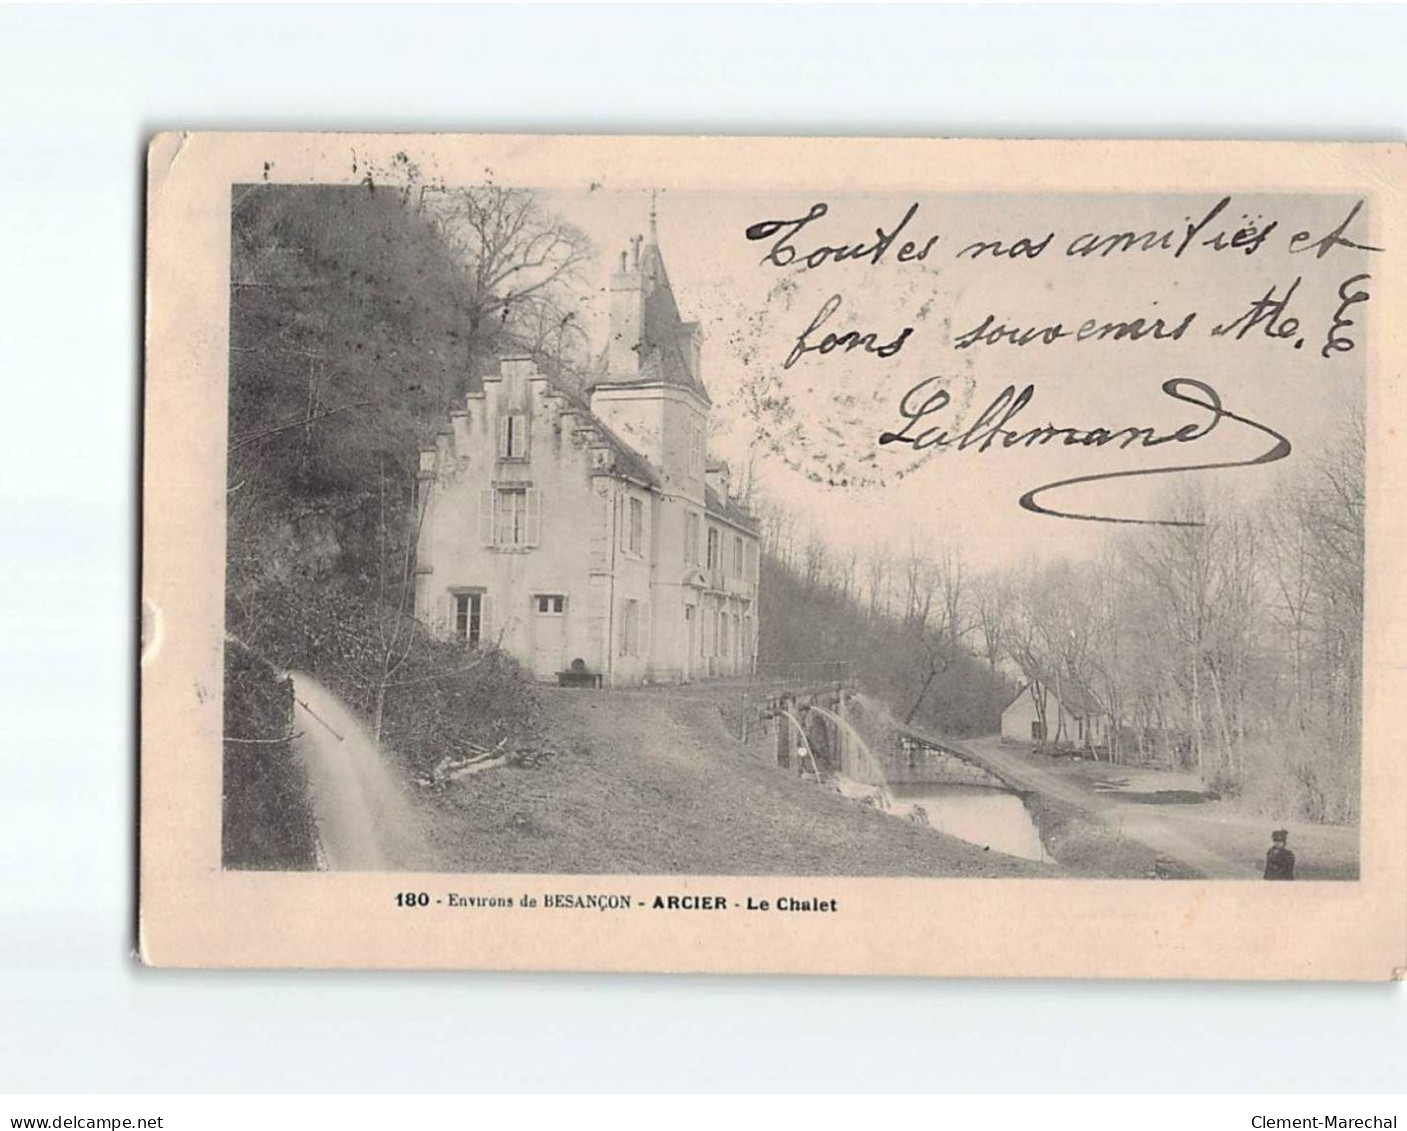 Toutes nos amitiës et
bons souvenirs M. E
Lallemand
180 - Environs de BESANÇON - ARCIER - Le Chalet
www.delcampe.net
Clement-Marechal